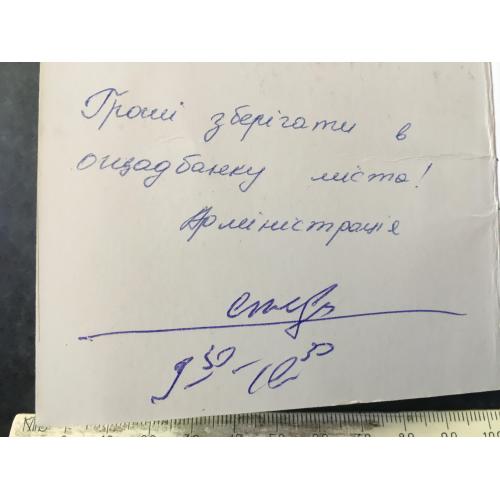 Гроші зберігати в
ощадбанку міста!
Адміністрація
9³⁰ - 10³⁰